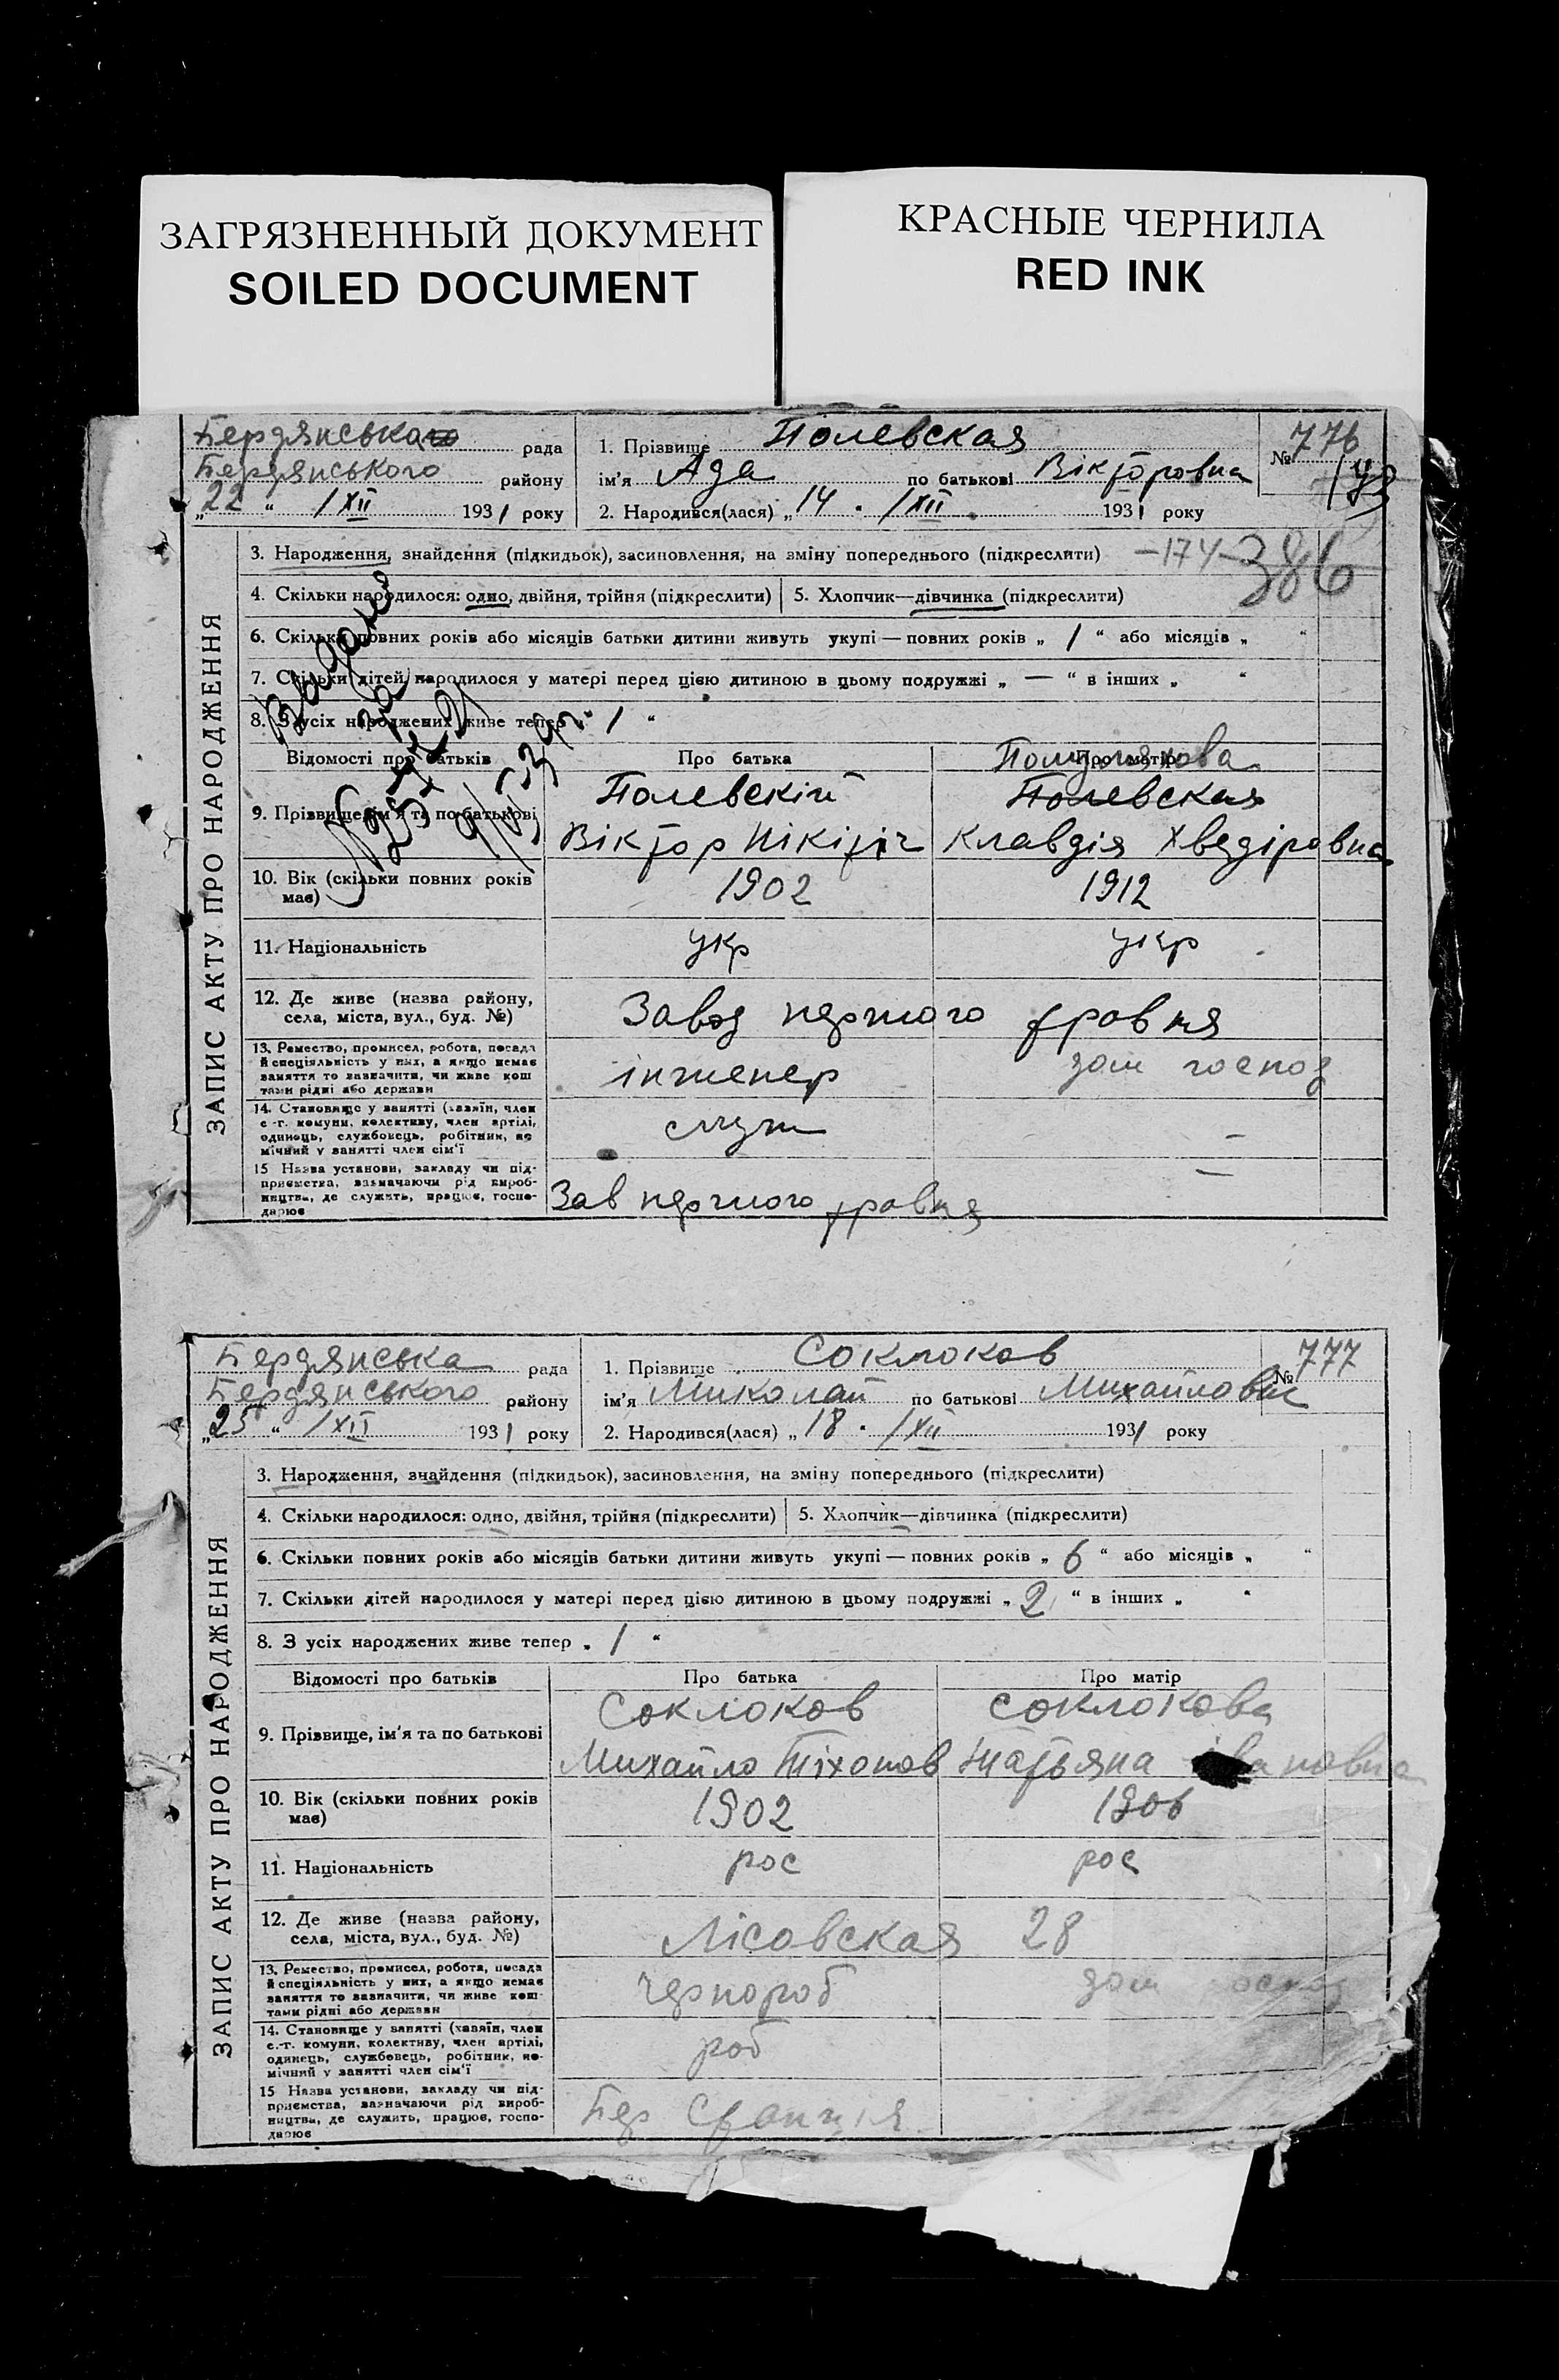 ЗАГРЯЗНЕННЫЙ ДОКУМЕНТ
SOILED DOCUMENT
КРАСНЫЕ ЧЕРНИЛА
RED INK
Бердянська рада
Бердянського району
„22 “ /XII 1931 року
1. Прізвище Полевская
ім'я Ада по батькові Вікторовна
2. Народився(лася) „14 . /XII 1931 року
№ 776
ЗАПИС АКТУ ПРО НАРОДЖЕННЯ
3. Народження, знайдення (підкидьок), засиновлення, на зміну попереднього (підкреслити) —174— 386
4. Скільки народилося: одно, двійня, трійня (підкреслити) 5. Хлопчик—дівчинка (підкреслити)
6. Скільки повних років або місяців батьки дитини живуть укупі — повних років „ 1 “ або місяців „ “
7. Скільки дітей народилося у матері перед цією дитиною в цьому подружжі „ — “ в інших „ “
8. З усіх народжених живе тепер „ 1 “
Видано
Відомості про батьків Про батька Про матір
9. Прізвище, ім'я та по батькові Полевскій Полевская
Віктор Нікітіч Клавдія Хведіровна
10. Вік (скільки повних років має) 1902 1912
11. Національність укр укр
12. Де живе (назва району, села, міста, вул., буд. №) Завод першого травня
13. Ремество, промисел, робота, посада й спеціяльність у них, а якщо немає заняття то зазначити, чи живе кош тами рідні або держави інженер дом господ
14. Становище у занятті (хазяїн, член с.-г. комуни, колективу, член артілі, одинець, службовець, робітник, по мічний у занятті член сім'ї служ —
15 Назва установи, закладу чи під- приємства, зазначаючи рід вироб- ництва, де служить, працює, госпо- дарює Зав першого травня —
Бердянська рада
Бердянського району
„25 “ /XII 1931 року
1. Прізвище Соклоков
ім'я Миколай по батькові Михайловис
2. Народився(лася) „18 . /XII 1931 року
№ 777
ЗАПИС АКТУ ПРО НАРОДЖЕННЯ
3. Народження, знайдення (підкидьок), засиновлення, на зміну попереднього (підкреслити)
4. Скільки народилося: одно, двійня, трійня (підкреслити) 5. Хлопчик—дівчинка (підкреслити)
6. Скільки повних років або місяців батьки дитини живуть укупі — повних років „ 6 “ або місяців „ “
7. Скільки дітей народилося у матері перед цією дитиною в цьому подружжі „ 2 “ в інших „ “
8. З усіх народжених живе тепер „ 1 “
Відомості про батьків Про батька Про матір
9. Прізвище, ім'я та по батькові Соклоков Соклокова
Михайло Тіхонов Татьяна Івановна
10. Вік (скільки повних років має) 1902 1906
11. Національність рос рос
12. Де живе (назва району, села, міста, вул., буд. №) Лісовская 28
13. Ремество, промисел, робота, посада й спеціяльність у них, а якщо немає заняття то зазначити, чи живе кош тами рідні або держави чернороб дом
14. Становище у занятті (хазяїн, член с.-г. комуни, колективу, член артілі, одинець, службовець, робітник, по- мічний у занятті член сім'ї роб
15 Назва установи, закладу чи під- приємства, зазначаючи рід вироб- ництва, де служить, працює, госпо- дарює Бер Станція